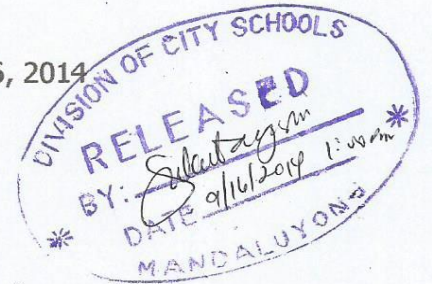 , 2014
DIVISION OF CITY SCHOOLS
RELEASED
BY:
DATE 9/16/2014
MANDALUYONG